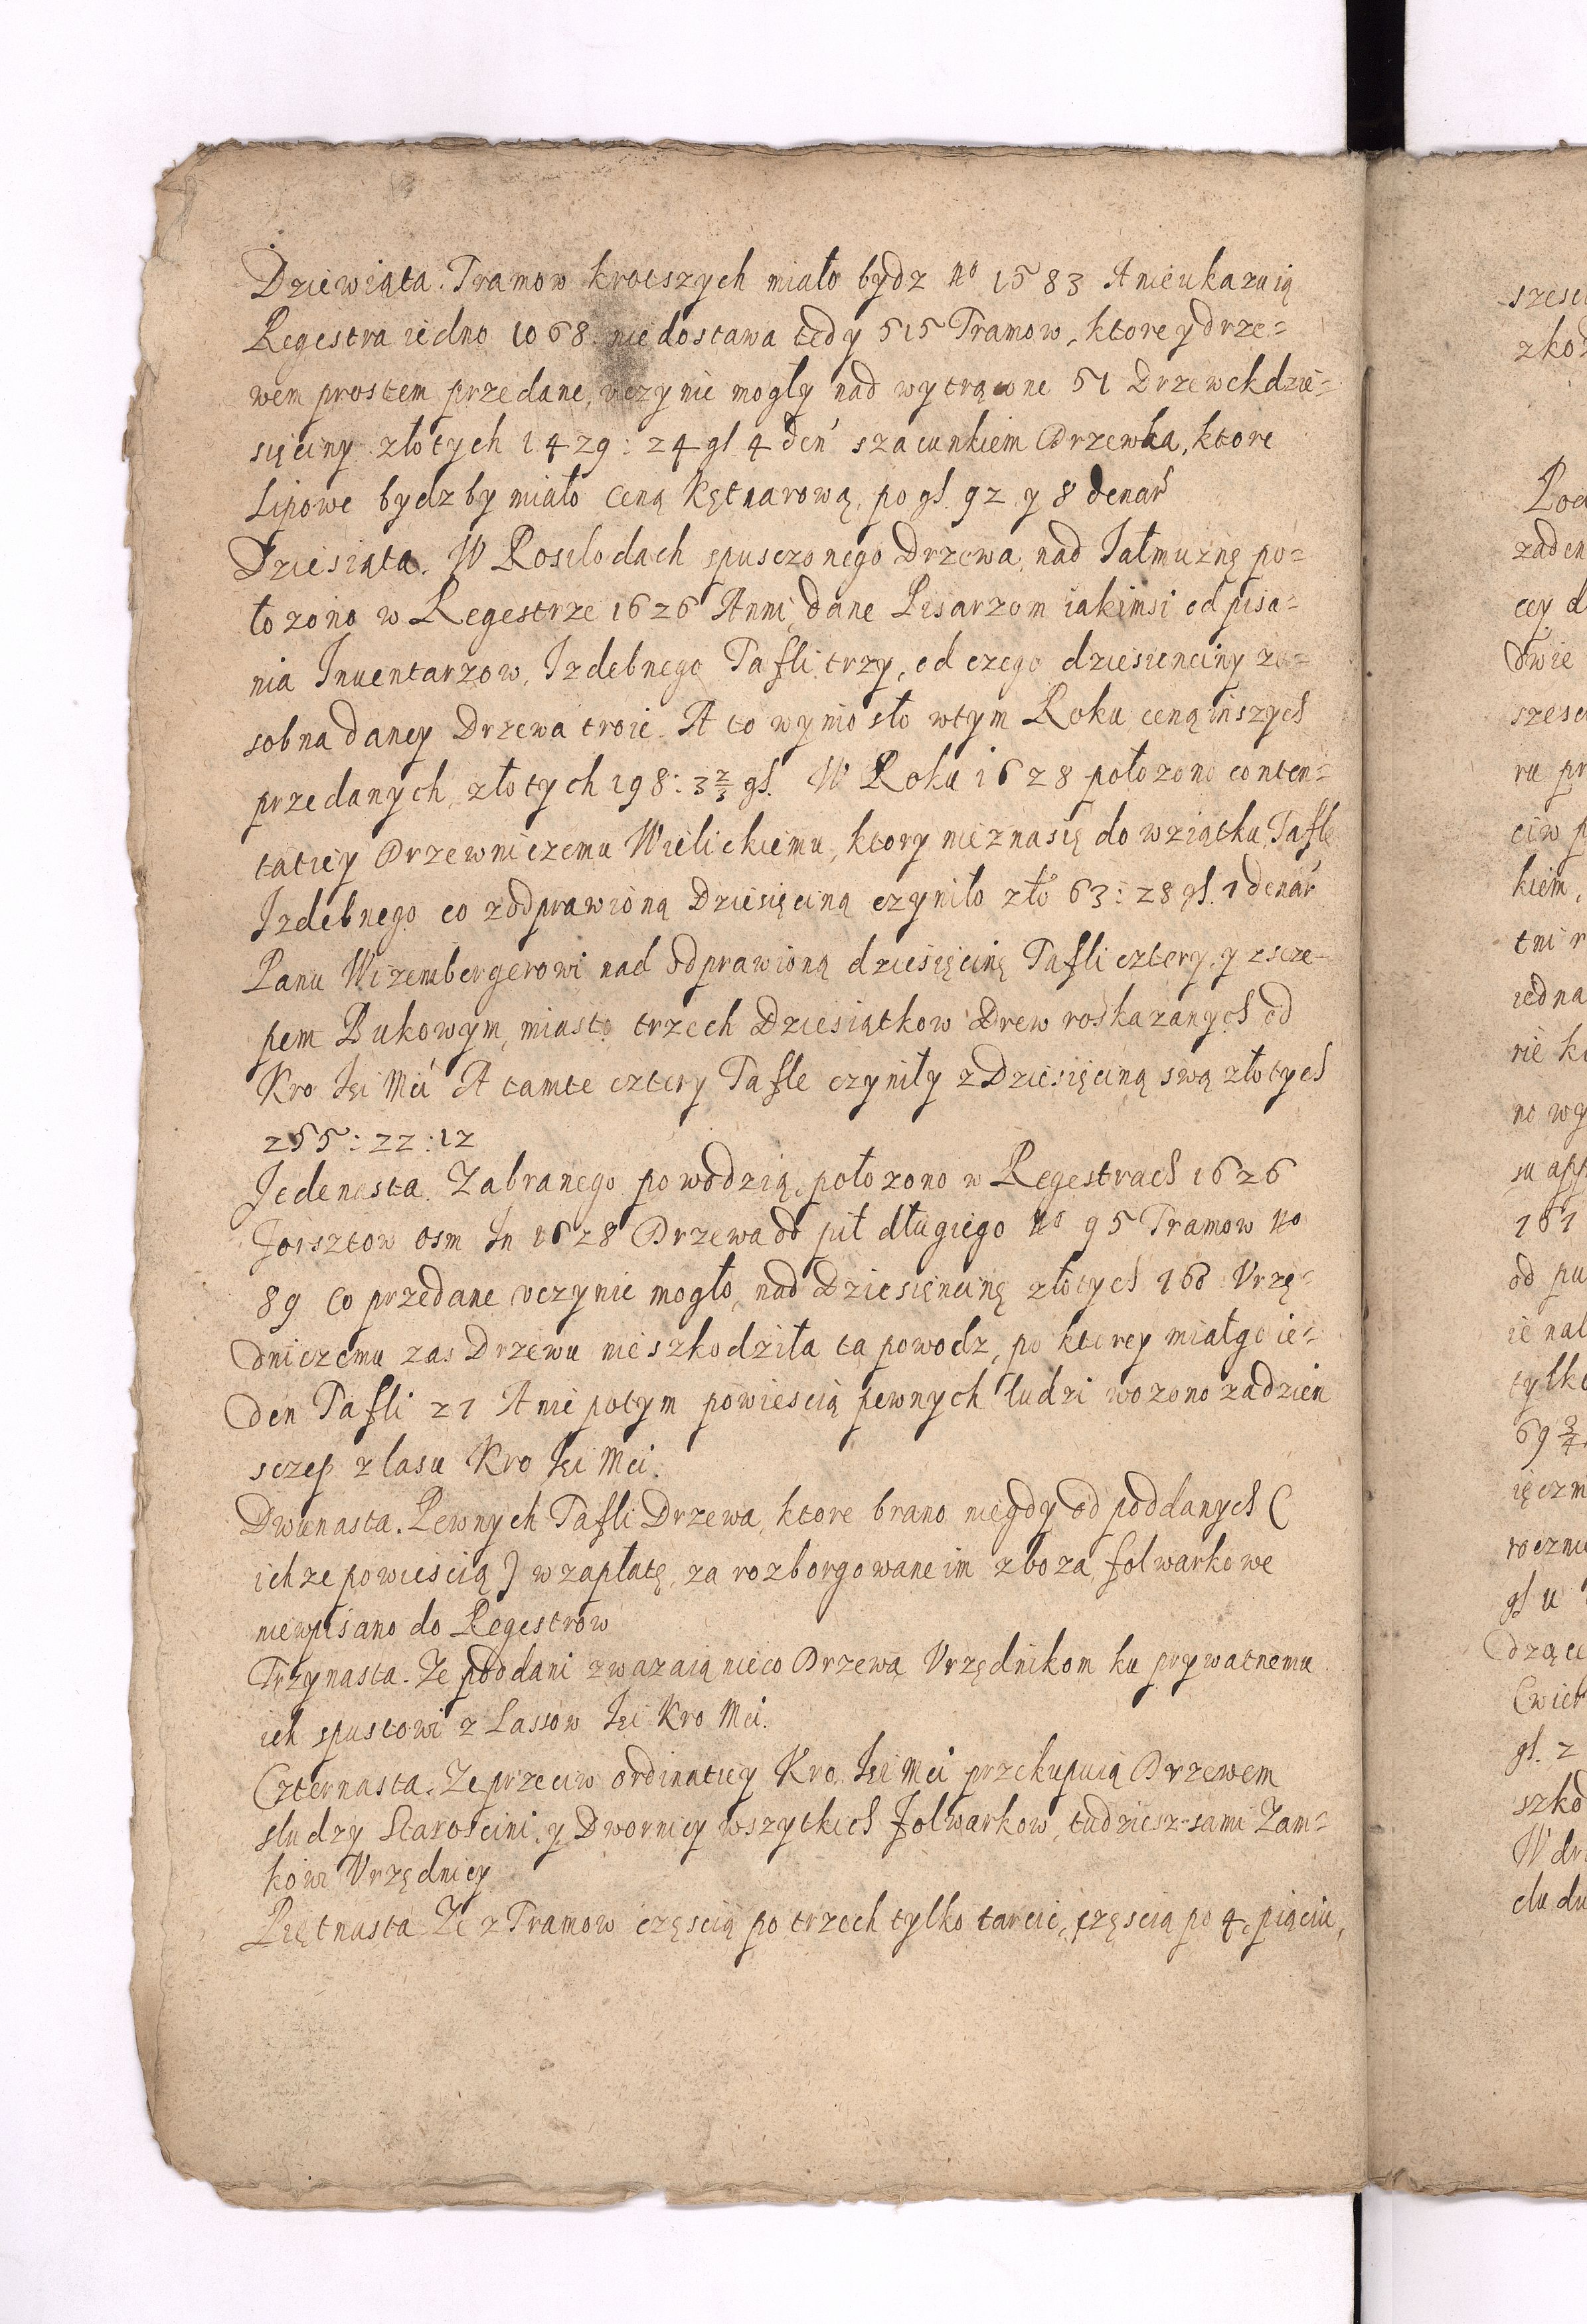 Dziewiąta. Tramow krotszych miało bydz no 1583 A nie ukazuią
Regestra iedno 1068. niedostawa tedy 515 Tramow, ktore y drze=
wem prostem przedane, uczynic mogły nad wytrącone 51 Drzewek dzie=
sięciny złotych 1429: 24 gł. 4 den szacunkiem Drzewka, ktore
Lipowe bydz by miało Ceną Kętnarową, po gł. 92 y 8 denar
Dziesiąta. W Roschodach spusczonego Drzewa, nad Iałmuznę po=
łozono w Regestrze 1626 Anni, dane Pisarzom iakimsi od pisa=
nia Inuentarzow, Izdebnego Tafli trzy, od czego dziesienciny za=
sobna daney Drzewa troie. A to wyniosło w tym Roku ceną inszych
przedanych, złotych 198: 3 2/3 gł. W Roku 1628 połozono conten=
tatiey Drzewniczemu Wielickiemu, ktory nieznasię do wziątku, Tafle
Izdebnego co z odprawioną Dziesięciną czyniło zło 63: 28 gł. 1 denar
Panu Wizembergerowi nad odprawioną dziesięcinę Tafli cztery, y z scze=
pem Bukowym, miasto trzech Dziesiątkow Drew roskazanych od
Kro Jei Mci A tamte cztery Tafle czyniły z Dziesięciną swą złotych
255: 22: 12
Jedenasta. Zabranego powodzią, połozono w Regestrach 1626
Joisztow osm In 1628 Drzewa od pił długiego no 95 Tramow no
89 Co przedane uczynic mogło, nad Dziesięncinę złotych 160 Vrzę=
dniczemu zas Drzewu nie szkodziła ta powodz, po ktorey miał go ie=
den Tafli 21 A nie potym powiescią pewnych ludzi wozono zadzien
sczep z lasu Kro Jei Mci.
Dwunasta. Pewnych Tafli Drzewa, ktore brano niegdy od poddanych (
ichze powiescią) w zapłatę, za rozborgowane im zboza folwarkowe
niewpisano do Regestrow
Trzynasta. Ze poddani zwazaią nieco Drzewa Vrzędnikom ku prywatnemu
ich spustowi z Lassow Jei Kro Mci.
Czternasta. Ze przeciw ordinatiey Kro. Jei Mci przekupuią Drzewem
słudzy Starościni, y Dwornicy wszytkich folwarkow, tudziesz sami Zam=
kowi Vrzędnicy
Piętnasta Ze z Tramow częscią po trzech tylko tarcic, częscią po 4, piąciu,